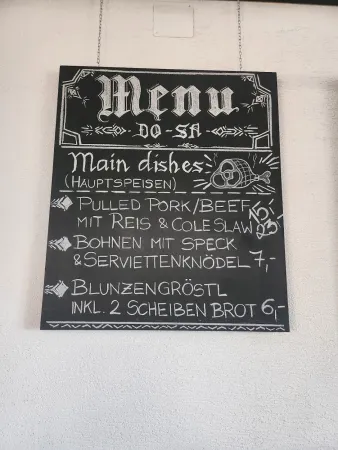 Menu
DO - SA
Main dishes
(HAUPTSPEISEN)
PULLED PORK/BEEF 15,-
MIT REIS & COLESLAW 23,-
BOHNEN MIT SPECK
& SERVIETTENKNÖDEL 7,-
BLUNZENGRÖSTL
INKL. 2 SCHEIBEN BROT 6,-